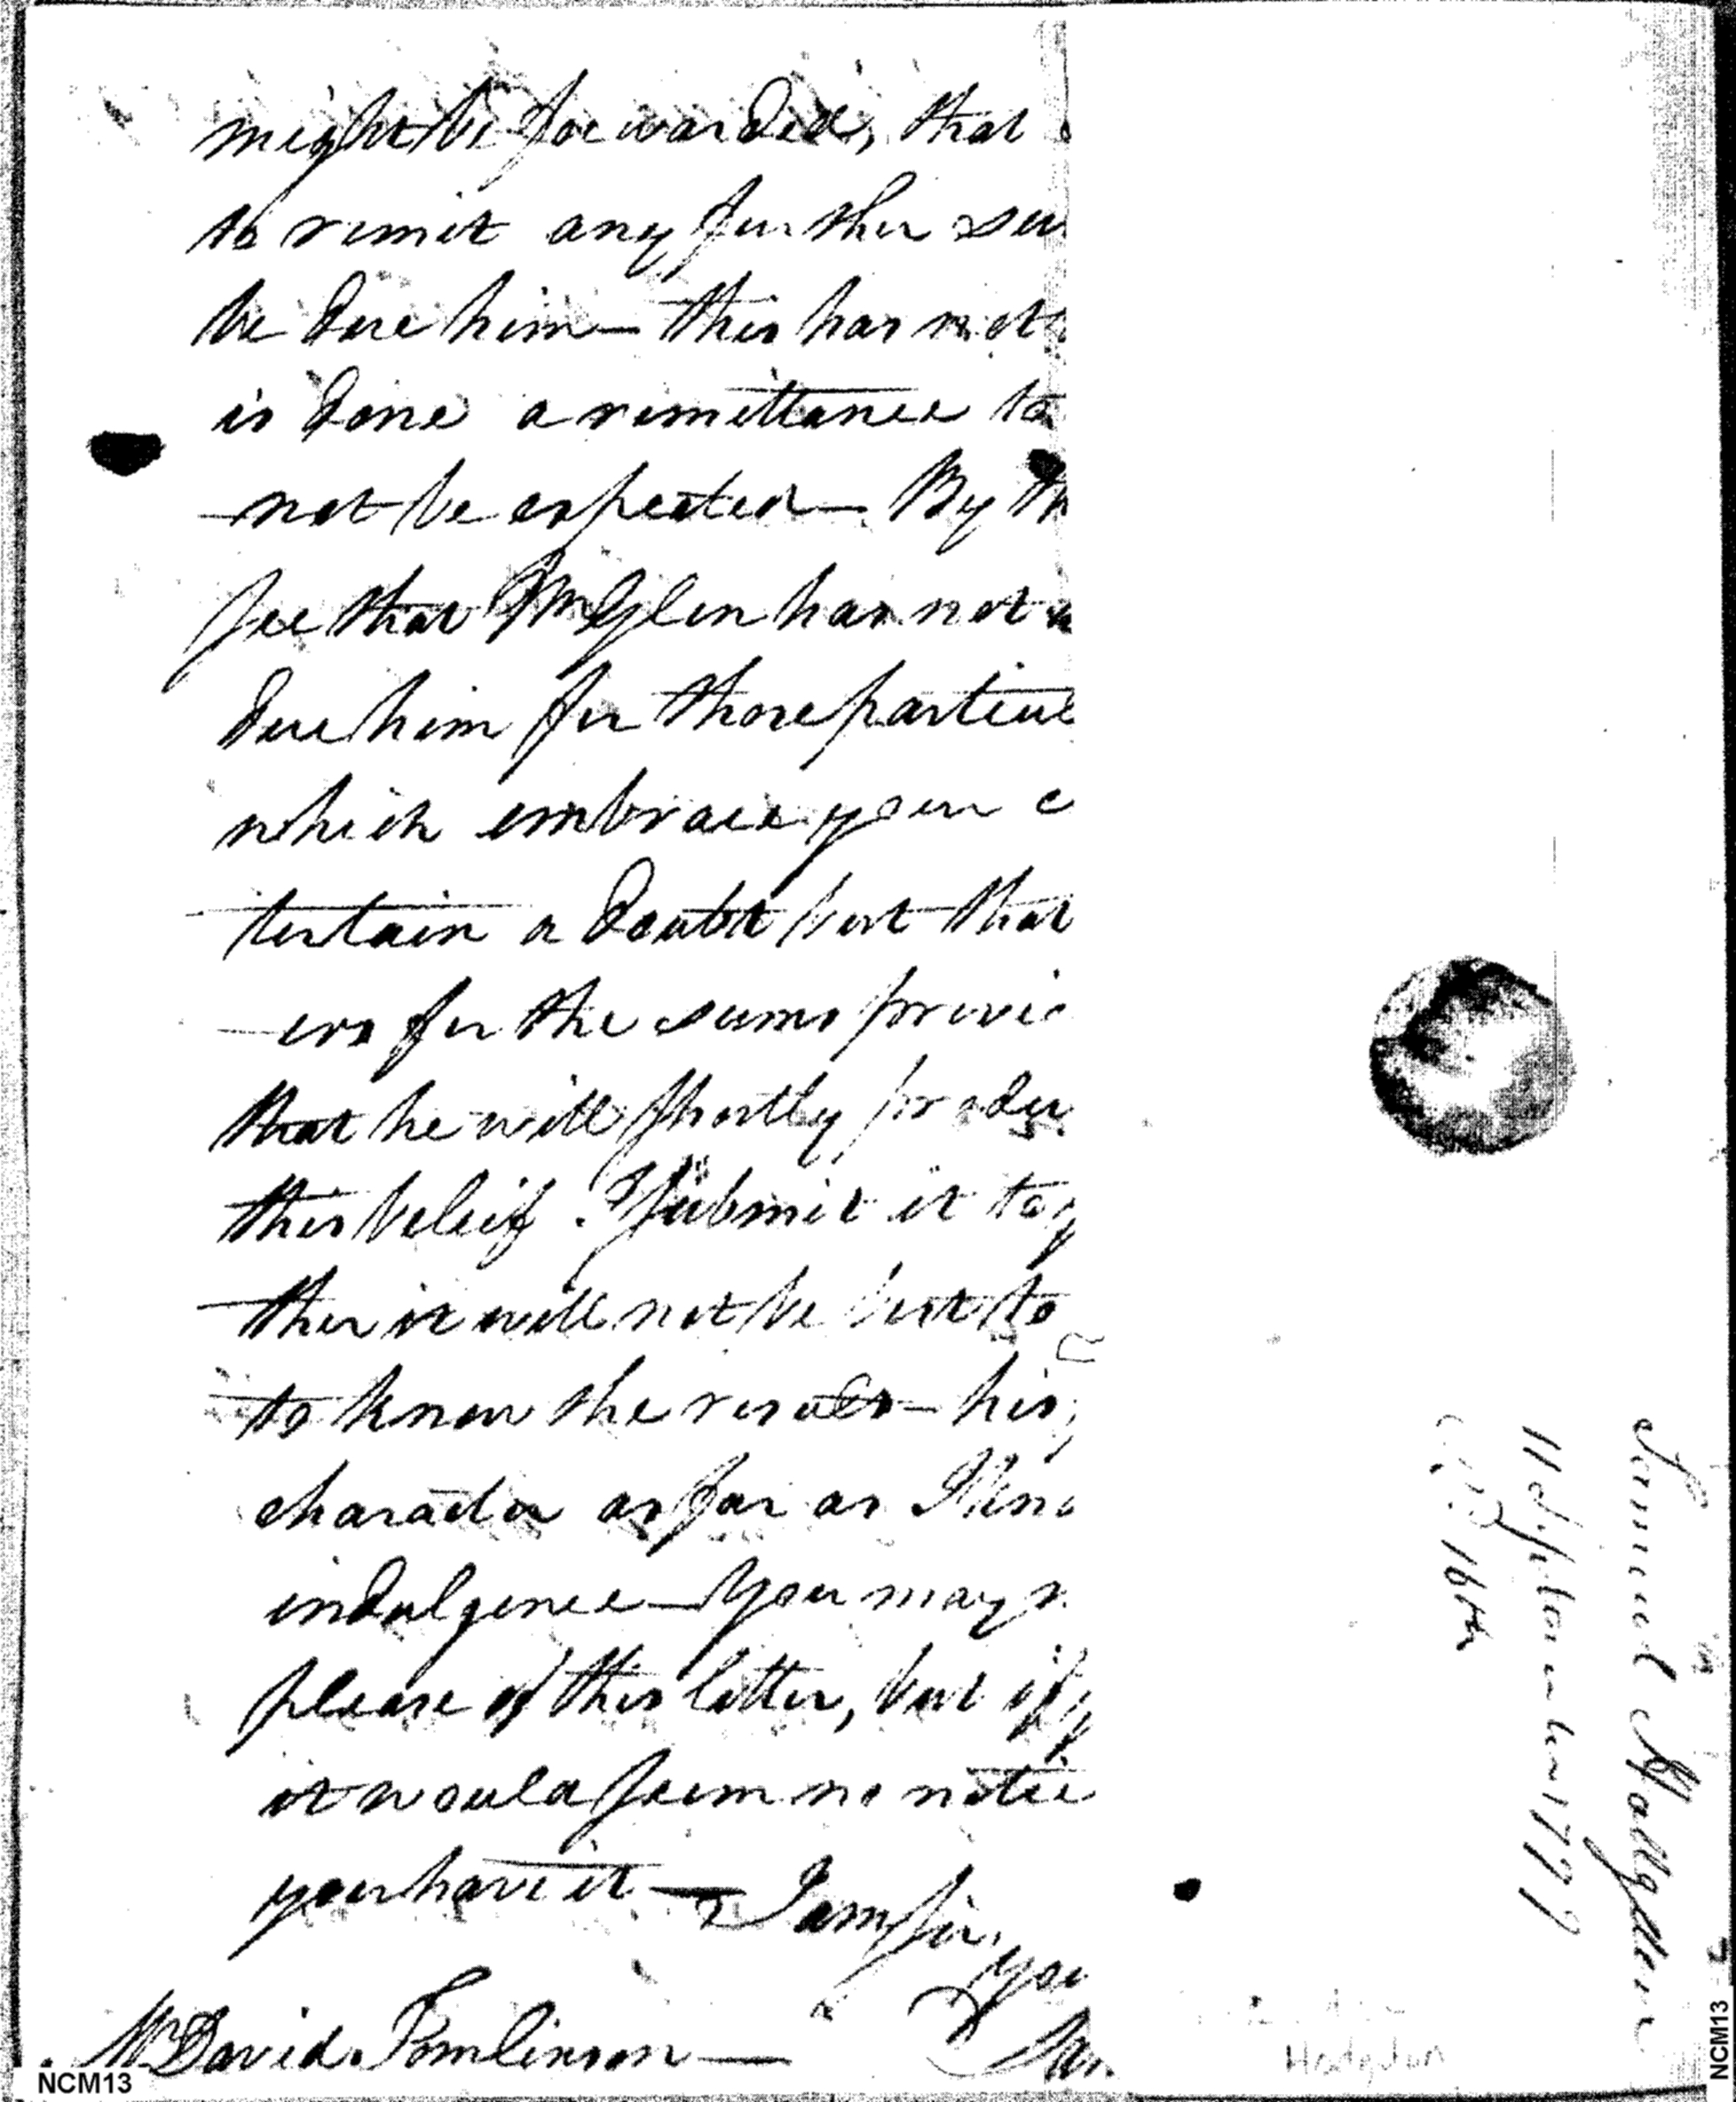 might be forwarded, that
to remit any further su
be due him — this has not
is done a remittance to
not be expected — By th
see that Mr Glen has not
due him for those particul
which embrace your c
tertain a doubt but that
ers for the sums provi
that he will shortly produ
this beleif. I submit it to y
ther it will not be best to
to know the result — his
character as far as I kno
indulgence — You may
please of this letter, but if y
it would seem no notic
you have it — I am sir,
you
Mr David Tomlinson —
Sam
Samuel Hodgdon
11 September 1799
16th
Hodgdon
NCM13
NCM13